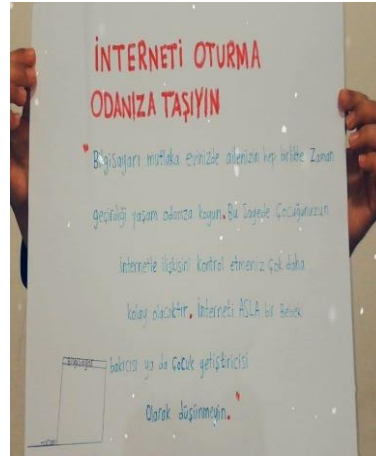 İNTERNETİ OTURMA
ODANIZA TAŞIYIN
"Bilgisayarı mutlaka evinizde ailenizin hep birlikte Zaman
geçirdiği yaşam odanıza koyun. Bu Sayede Çocuğunuzun
internetle ilişkisini kontrol etmeniz çok daha
kolay olacaktır. İnterneti ASLA bir Bebek
bakıcısı ya da Çocuk yetiştiricisi
Olarak düşünmeyin."
Bilgisayar